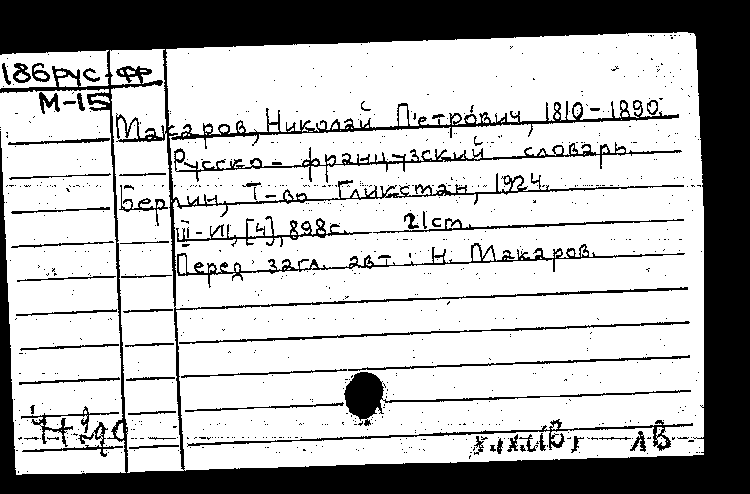 186рус-фр.
М-15
Макаров, Николай Петрович, 1810-1890.
Русско-французский словарь.
Берлин, Т-во Гликстан, 1924.
III-VII, [4], 898с. 21cm.
Перед загл. авт.: Н. Макаров.
лВ